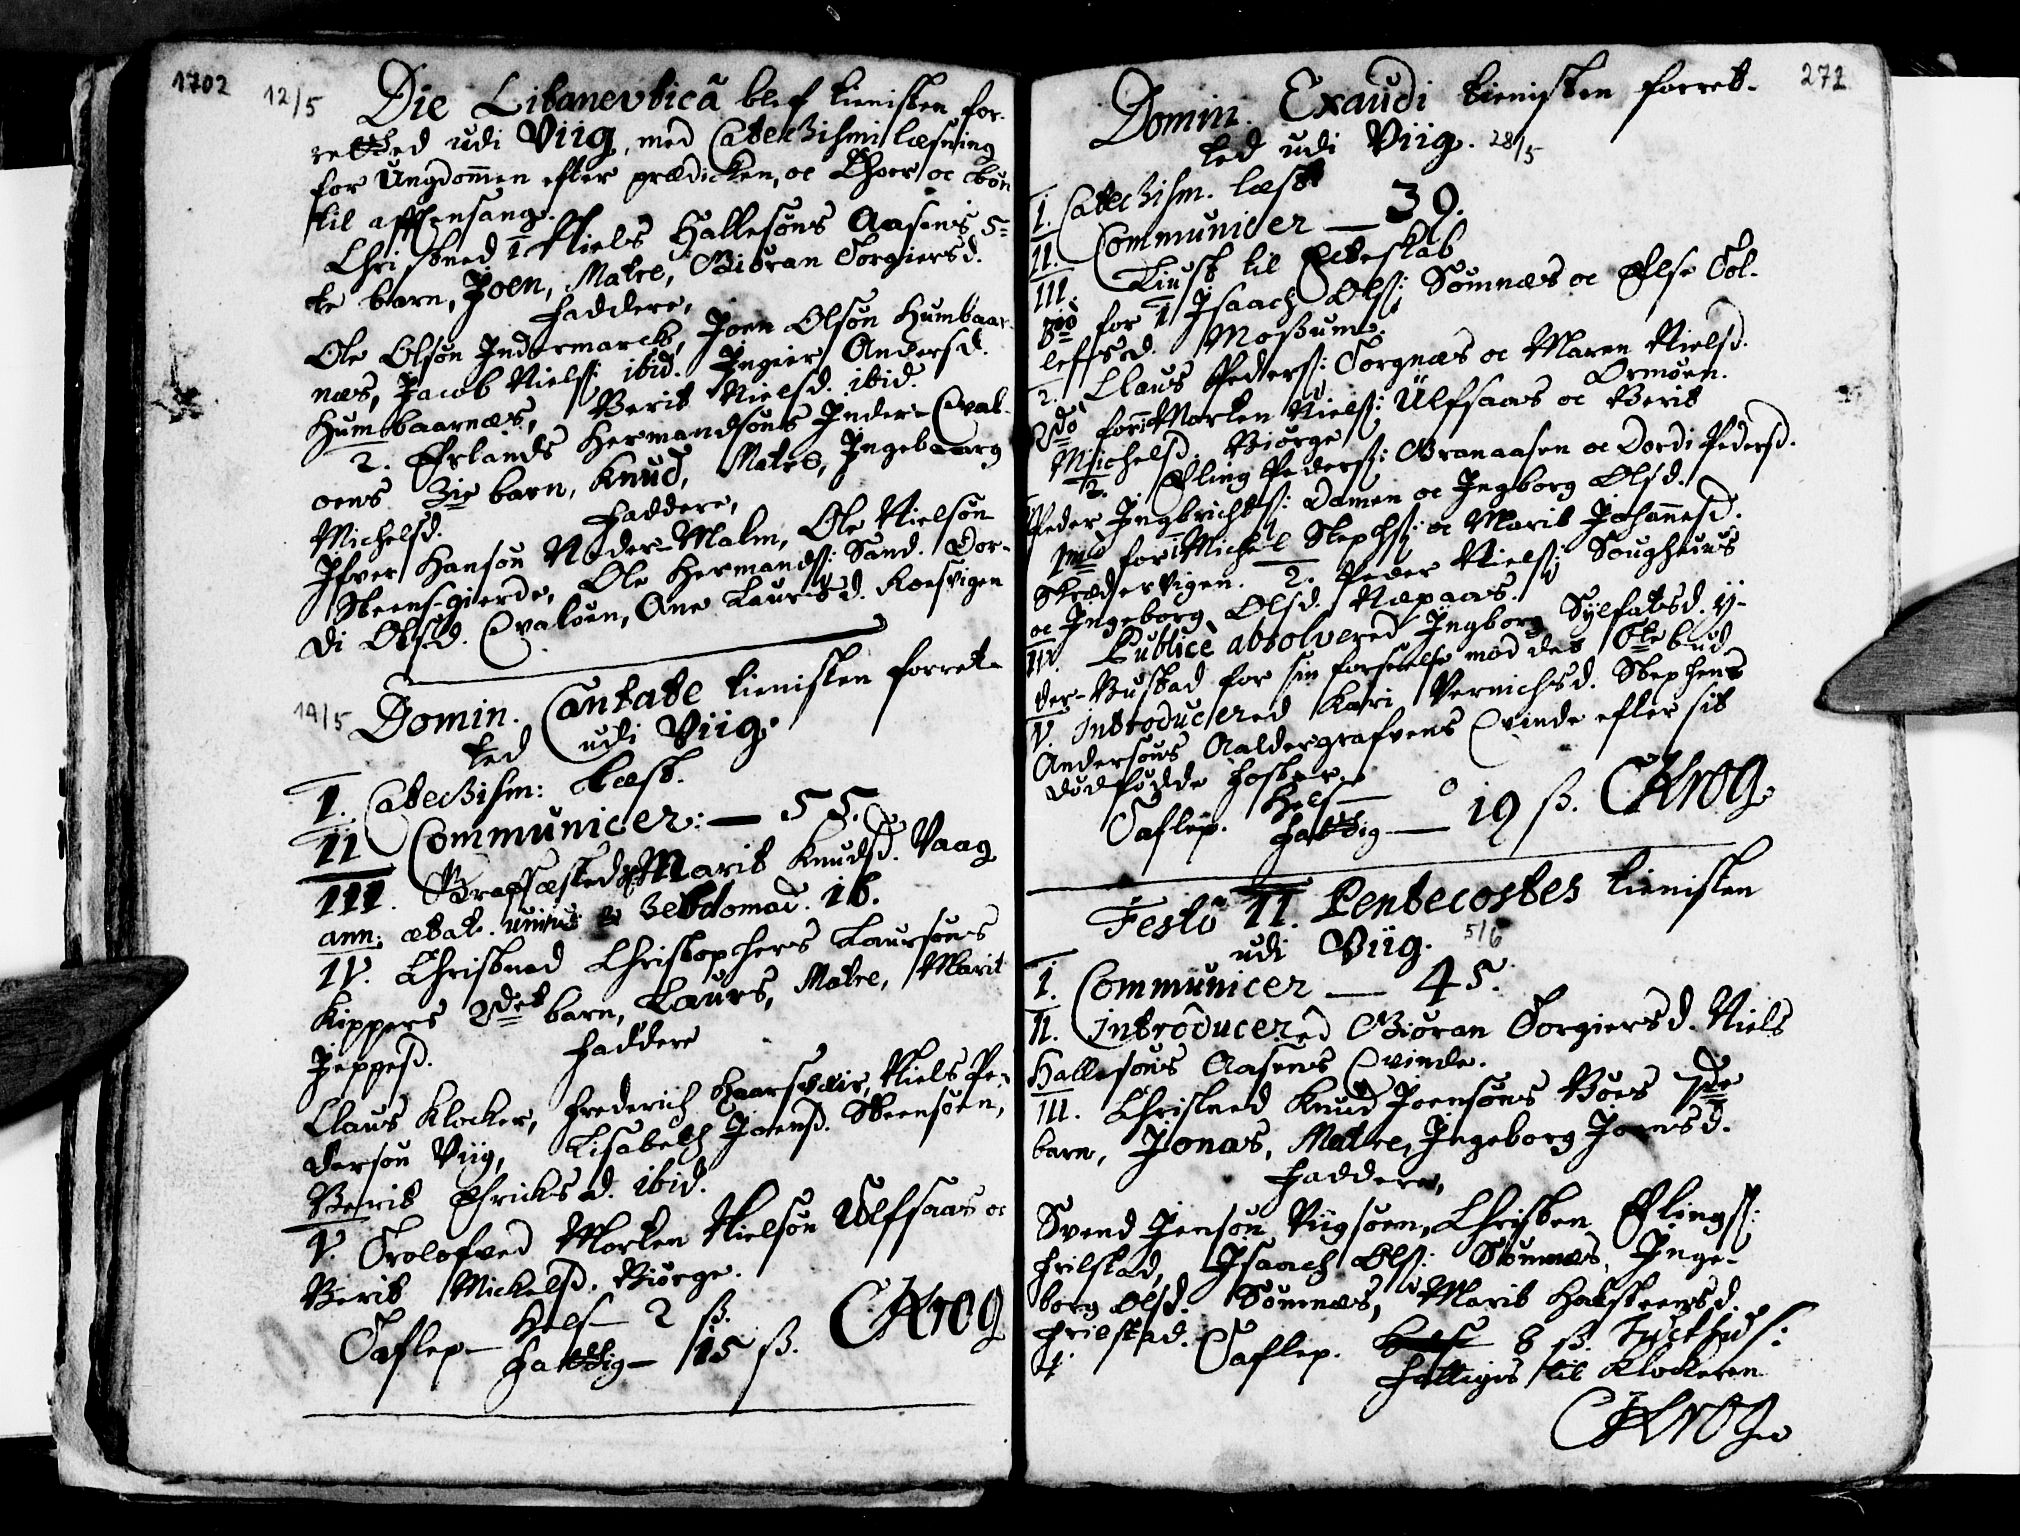 1702
12/5
Die Litanevticâ blef tienisten for-
retted udi Viig, med Catechismi læsning
for Ungdommen efter prædicken, oc Choer oc bøn
til afftensang.
Christned 1 Niels Hallesøns Aasens 5-
te barn, Joen, Matre, Giøran Torgiersd.
Faddere,
Ole Olsøn Indermarck, Joen Olsøn Humbaar-
næs, Jacob Nielss: ibid. Ingier Andersd.
Humbaarnæs, Berit Nielsd. ibid.
2. Erlands Hermandsøns Inder-Qval-
øens 3ie barn, Knud, Matre, Ingebaarg
Michelsd. Faddere,
Ifver Hansøn Neder-Malm, Ole Nielsøn
Steens-gierde, Ole Hermandss: Sand. Dor-
di Olsd. Qvaløen, Ane Laursd. Koesvigen
14/5
Domin. Cantate tienisten forret-
ted udi Viig.
I. Catechism: læst.
II Communicer: — 55.
III. Grafsæsted Marit Knudsd. Vaag
ann. ætat. unius hebdomad. 16.
IV. Christned Christophers Laursøns
Kippers 2det barn, Laurs, Matre, Marit
Jeppesd. Faddere
Claus Klocker, Frederich Haarsvair, Niels Pe-
dersøn Viig, Lisabeth Joensd. Steensøen,
Berit Erichsd. ibid.
V. Trolofved Morten Nielsøn Ulfsaas oc
Berit Mickelsd. Biørge.
Taflep— Hels— 2 ß.
Fattig— 15 ß. CKrog
271
Domin. Exaudi tienisten forret-
ted udi Viig. 28/5
I. Catechism. læst
II. Communicer — 39.
III. Liust til Ecteskab
3io for 1 Isaach Olss: Sømnæs oc Else Tol-
leffsd. Mossum.
2. Claus Pederss: Torgnæs oc Maren Nielsd.
Ormøen.
2do for 1 Morten Nielss: Ulfsaas oc Berit
Michelsd. Biørge
2. Elling Pederss: Granaasen oc Dordi Pedersd.
Peder Ingbrichtss: Damen oc Ingborg Olsd.
1mo for 1 Michel Stephss: oc Marit Johannesd.
Skrædervigen. 2. Peder Nielss: Soughuus
oc Ingeborg Olsd. Næpaas.
IV. Publicè absolvered Ingborg Sylfastsd. Y-
der-Bustad for sin forseelse mod det 6te bud
V. Introducered Kari Vernichsd. Stephens
Andersøns Aaldergrafvens Qvinde efter sit
dødfødde foster.
Taflep. Hels — 0
Fattig — 19 ß. CKrog
Festô II. Pentecostes tienisten
udi Viig. 5/6
I. Communicer — 45.
II. Introducered Giøran Torgiersd. Niels
Hallesøns Aasens Qvinde.
III. Christned Knud Joensøns Bøes 7de
barn, Jonas, Matre, Ingeborg Joensd.
Faddere,
Svend Jensøn Viigsøen, Christen Ellingss:
Frilstad, Isaach Olss: Sømnæs, Inge-
borg Olsd. Sømnæs, Marit Halsteensd.
Frilstad.
4. Taflep. 8 ß.
Fattigis til Klockeren
CKrog